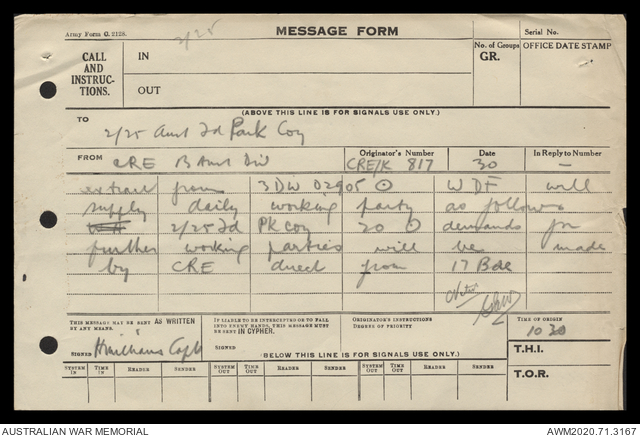 Army Form C. 2128.
2/25
MESSAGE FORM
Serial No.
CALL AND INSTRUC-TIONS.
IN
OUT
No. of Groups
GR.
OFFICE DATE STAMP
(ABOVE THIS LINE IS FOR SIGNALS USE ONLY.)
TO
2/25 Aust Fd Park Coy
FROM
CRE 3 Aust Div
Originator's Number
CRE/K 817
Date
30
In Reply to Number
—
extract from 3DW O2905 ⊙ WDF will
supply daily working party as follows
2/25 Fd PK Coy 20 ⊙ demands for
further working parties will be made
by CRE direct from 17 Bde
Noted
THIS MESSAGE MAY BE SENT AS WRITTEN BY ANY MEANS.
SIGNED
Capt
IF LIABLE TO BE INTERCEPTED OR TO FALL INTO ENEMY HANDS, THIS MESSAGE MUST BE SENT IN CIPHER.
SIGNED
ORIGINATOR'S INSTRUCTIONS
DEGREE OF PRIORITY
TIME OF ORIGIN
1030
(BELOW THIS LINE IS FOR SIGNALS USE ONLY.)
T.H.I.
SYSTEM IN TIME IN READER SENDER SYSTEM OUT TIME OUT READER SENDER SYSTEM OUT TIME OUT READER SENDER
T.O.R.
AUSTRALIAN WAR MEMORIAL
AWM2020.71.3167